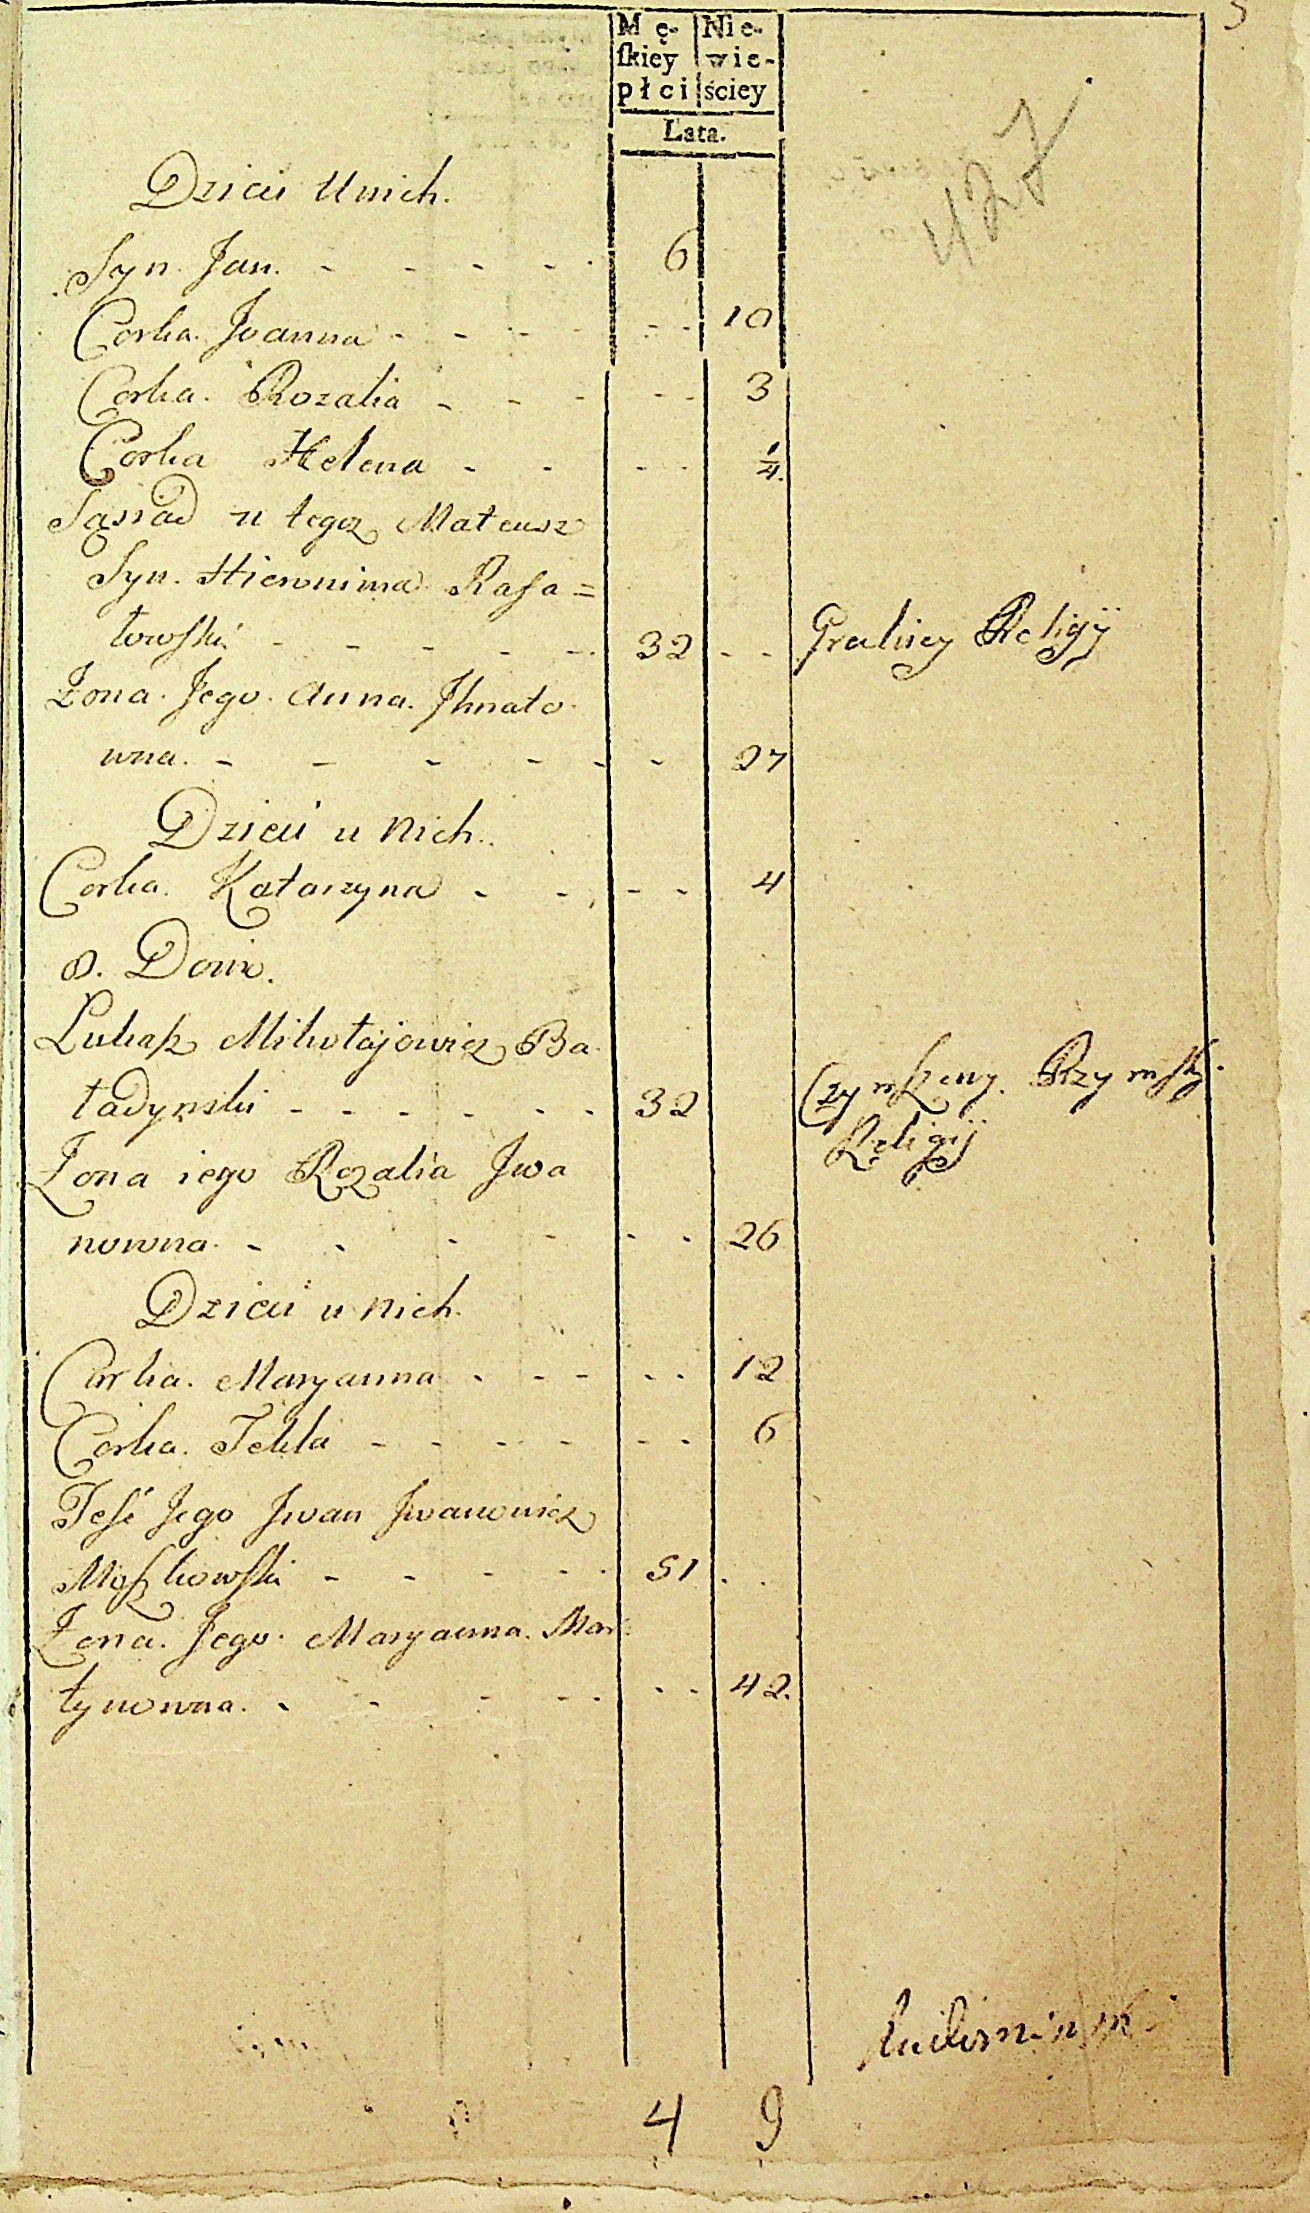 Mę- Nie-
skiey wie-
płci ściey
Lata.
427
Dzieci Unich.
Syn. Jan. - - - - 6
Corka. Joanna - - - - - - 10
Corka. Rozalia - - - - - 3
Corka Helena - - - - 1/4.
Sąsiad u tegoz Mateusz
Syn. Hieronima Rafa=
łowski - - - - - 32 - - Greckiey Religij
Zona. Jego. Anna. Ihnato
wna. - - - - - - 27
Dzieci u Nich.
Corka. Katarzyna - - - - 4
8. Dom.
Lukasz Mikołajowicz Ba
ładynski - - - - - - 32 Czynszowy. Rzymsky.
Religij
Zona iego Rozalia Iwa
nowna. - - - - - - 26
Dzieci u Nich.
Corka. Maryanna - - - - - 12
Corka. Tekla - - - - - - 6
Teść Jego Iwan Iwanowicz
Moszkowski - - - - - 51 - -
Zona. Jego. Maryanna. Mar
tynowna. - - - - - - - 42.
4 9